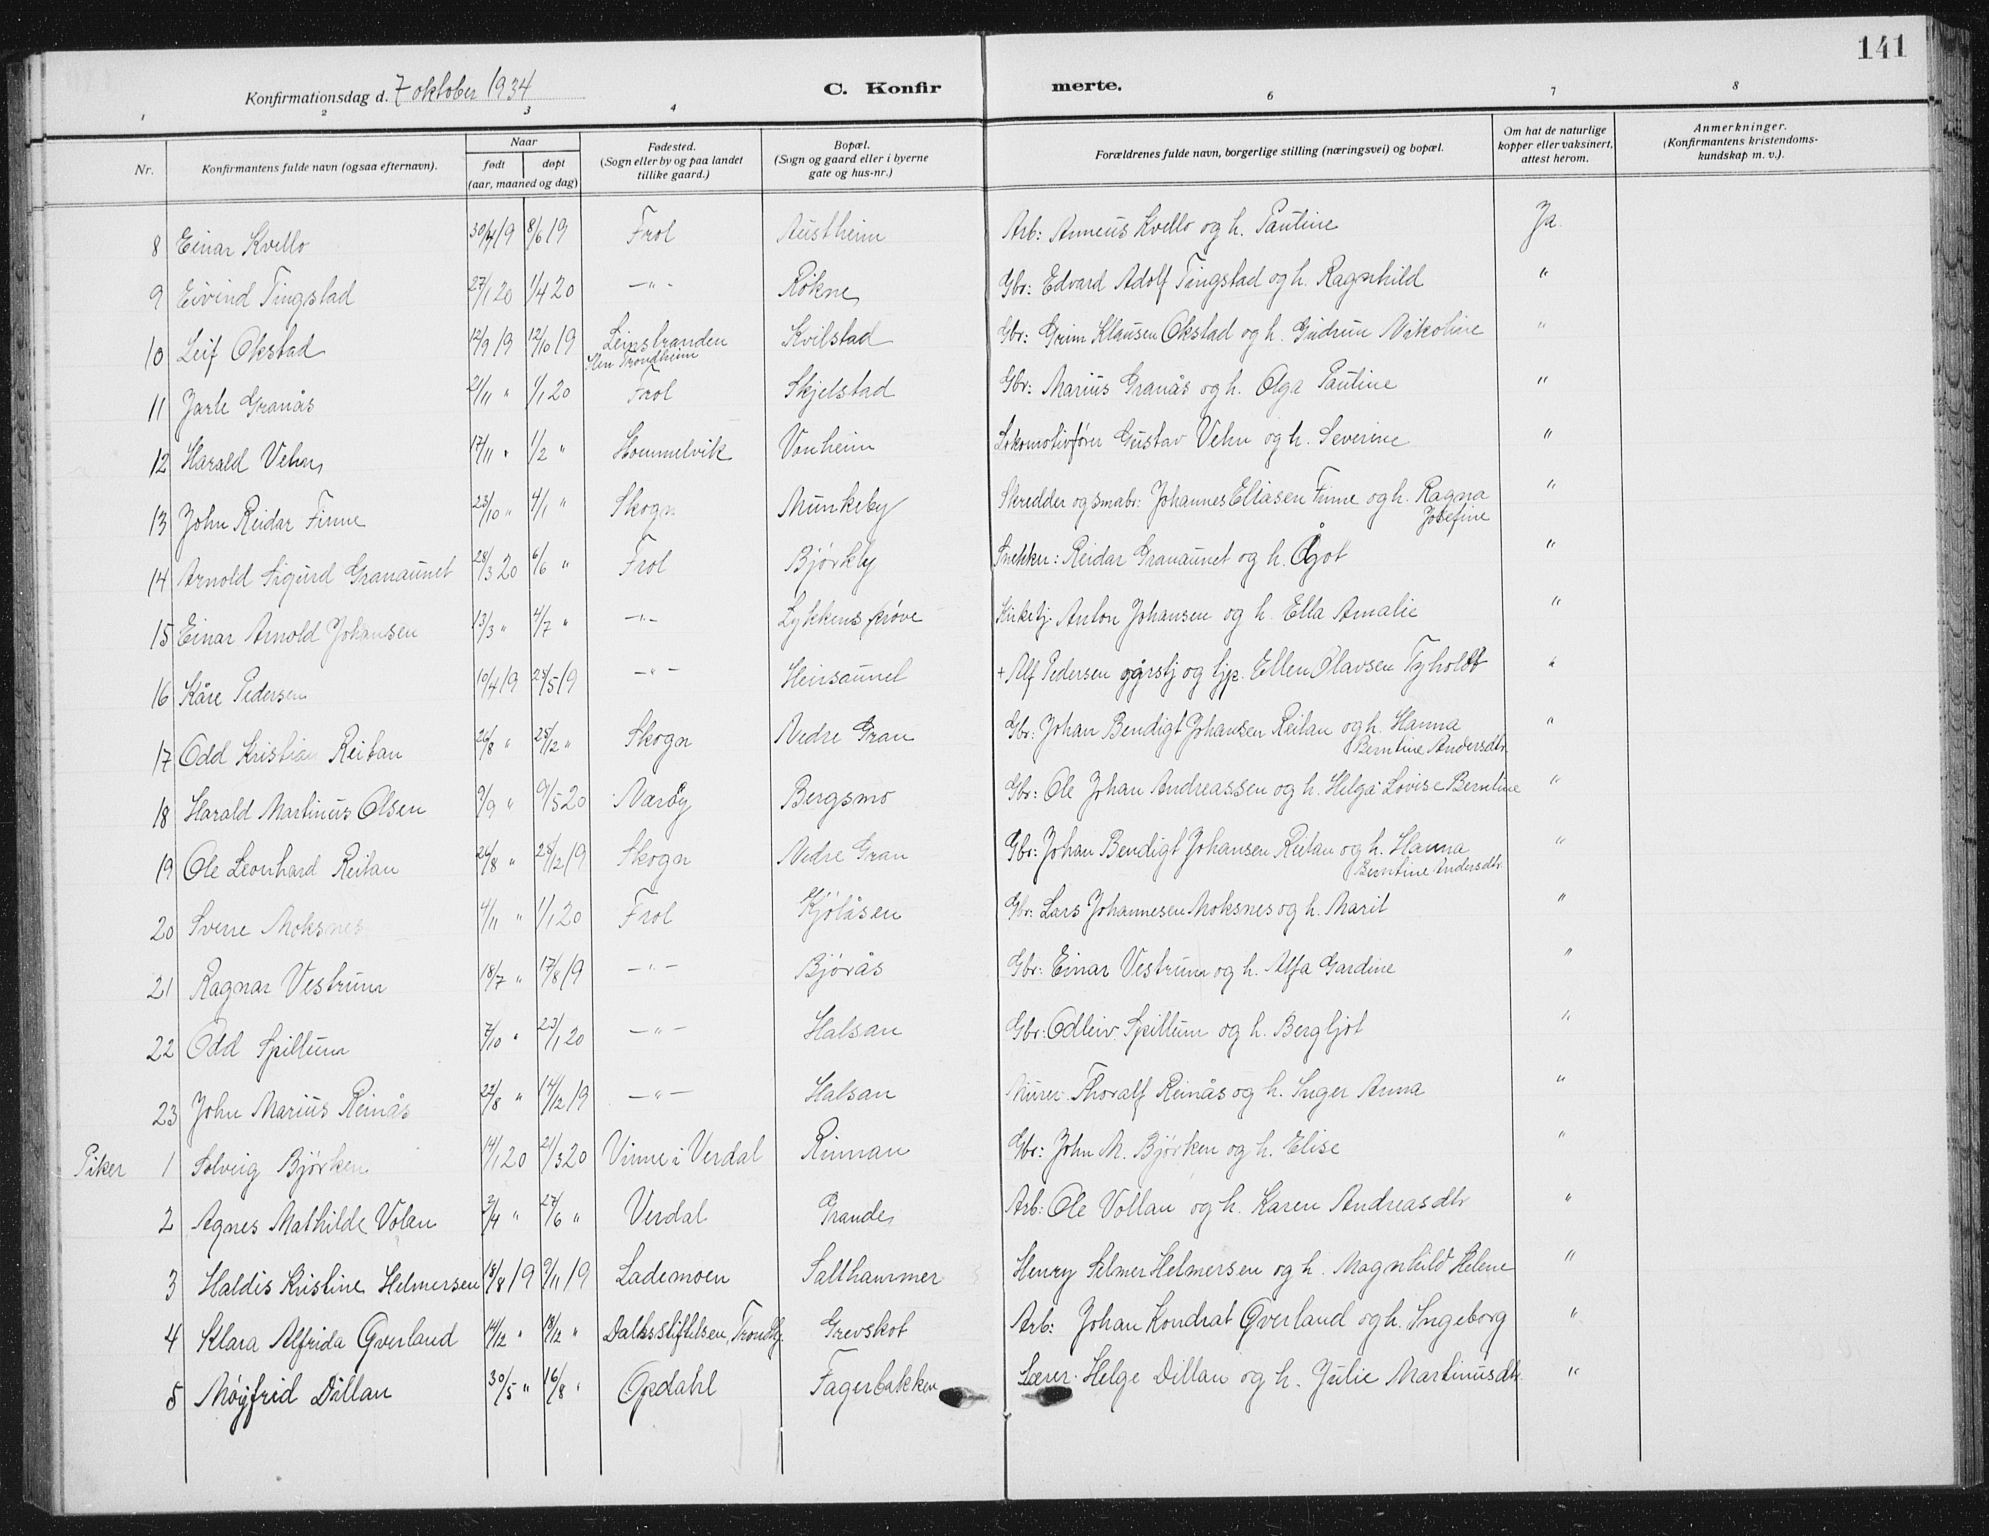 141
Konfirmationsdag d. 7 oktober 1934
C. Konfirmerte.
1 2 3 4 6 7 8
Nr. Konfirmantens fulde navn (ogsaa efternavn). Naar født døpt (aar, maaned og dag) Fødested. (Sogn eller by og paa landet tillike gaard.) Bopæl. (Sogn og gaard eller i byerne gate og hus-nr.) Forældrenes fulde navn, borgerlige stilling (næringsvei) og bopæl. Om hat de naturlige kopper eller vaksinert, attest herom. Anmerkninger. (Konfirmantens kristendoms-kundskap m. v.).
8 Einar Kvello 30/4 19 8/6 19 Frol Austheim Arb: Anneus Kvello og h. Pauline Ja
9 Eivind Tingstad 27/1 20 1/4 20 —"— Røkne Gbr: Edvard Adolf Tingstad og h. Ragnhild "
10 Leif Okstad 12/9 19 12/10 19 Leinstranden Kvilstad Gbr: Grim Klausen Okstad og h. Gudrun Nikoline "
11 Jarle Granås 21/11 " 1/1 20 Frol Skjelstad Gbr: Marius Granås og h. Olga Pauline "
12 Harald Vehn 17/11 " 1/2 " Hommelvik Vonheim Lokomotivfører Gustav Vehn og h. Severine "
13 John Reidar Finne 23/10 " 4/1 " Skogn Munkeby Skredder og småbr: Johannes Eliasen Finne og h. Ragna Josefine "
14 Arnold Sigurd Granaunet 28/3 20 6/6 " Frol Bjørkly Snekker: Reidar Granaunet og h. Ågot "
15 Einar Arnold Johansen 13/3 " 4/7 " —"— Lykkens prøve Kirketj. Anton Johansen og h. Ella Amalie "
16 Kåre Pedersen 10/4 19 25/5 19 —"— Heirsaunet + Alf Pedersen og Ellen Olavsen Tyholdt "
17 Odd Kristian Reitan 26/8 " 28/12 " Skogn Nedre Gran Gbr: Johan Bendigt Johansen Reitan og h. Hanna Berntine Andersdtr "
18 Harald Martinus Olsen 9/9 " 9/5 20 Nærøy Bergsmo Gbr: Ole Johan Andreassen og h. Helga Lovise Berntine "
19 Ole Leonhard Reitan 26/8 " 28/12 19 Skogn Nedre Gran Gbr: Johan Bendigt Johansen Reitan og h. Hanna Berntine Andersdtr "
20 Sverre Moksnes 4/11 " 1/1 20 Frol Kjølåsen Gbr: Lars Johannesen Moksnes og h. Marit "
21 Ragnar Vestrum 18/7 " 17/8 19 —"— Bjørås Gbr: Einar Vestrum og h. Alfa Gardine "
22 Odd Spillum 7/10 " 23/1 20 —"— Halsan Gbr: Odleiv Spillum og h. Bergljot "
23 John Marius Reinås 22/8 " 14/12 19 —"— Halsan Murer Thoralf Reinås og h. Inger Anna "
Piker 1 Solveig Bjørken 14/1 20 21/3 20 Vinne i Verdal Rinnan Gbr: John M. Bjørken og h. Elise "
2 Agnes Mathilde Volan 2/4 " 27/6 " Verdal Grande Arb: Ole Vollan og h. Karen Andreasdtr "
3 Haldis Kristine Helmersen 18/8 19 9/11 19 Lademoen Salthammer Henry Selmer Helmersen og h. Magnhild Helene "
4 Klara Alfrida Qverland 14/12 " 18/12 " E.C. Dahls Stiftelsen, Trondhj. Grevskot Arb: Johan Kondrat Qverland og h. Ingeborg "
5 Møyfrid Dillan 30/5 " 16/8 " Opdahl Fagerbakken Lærer Helge Dillan og h. Julie Martinusdtr. "